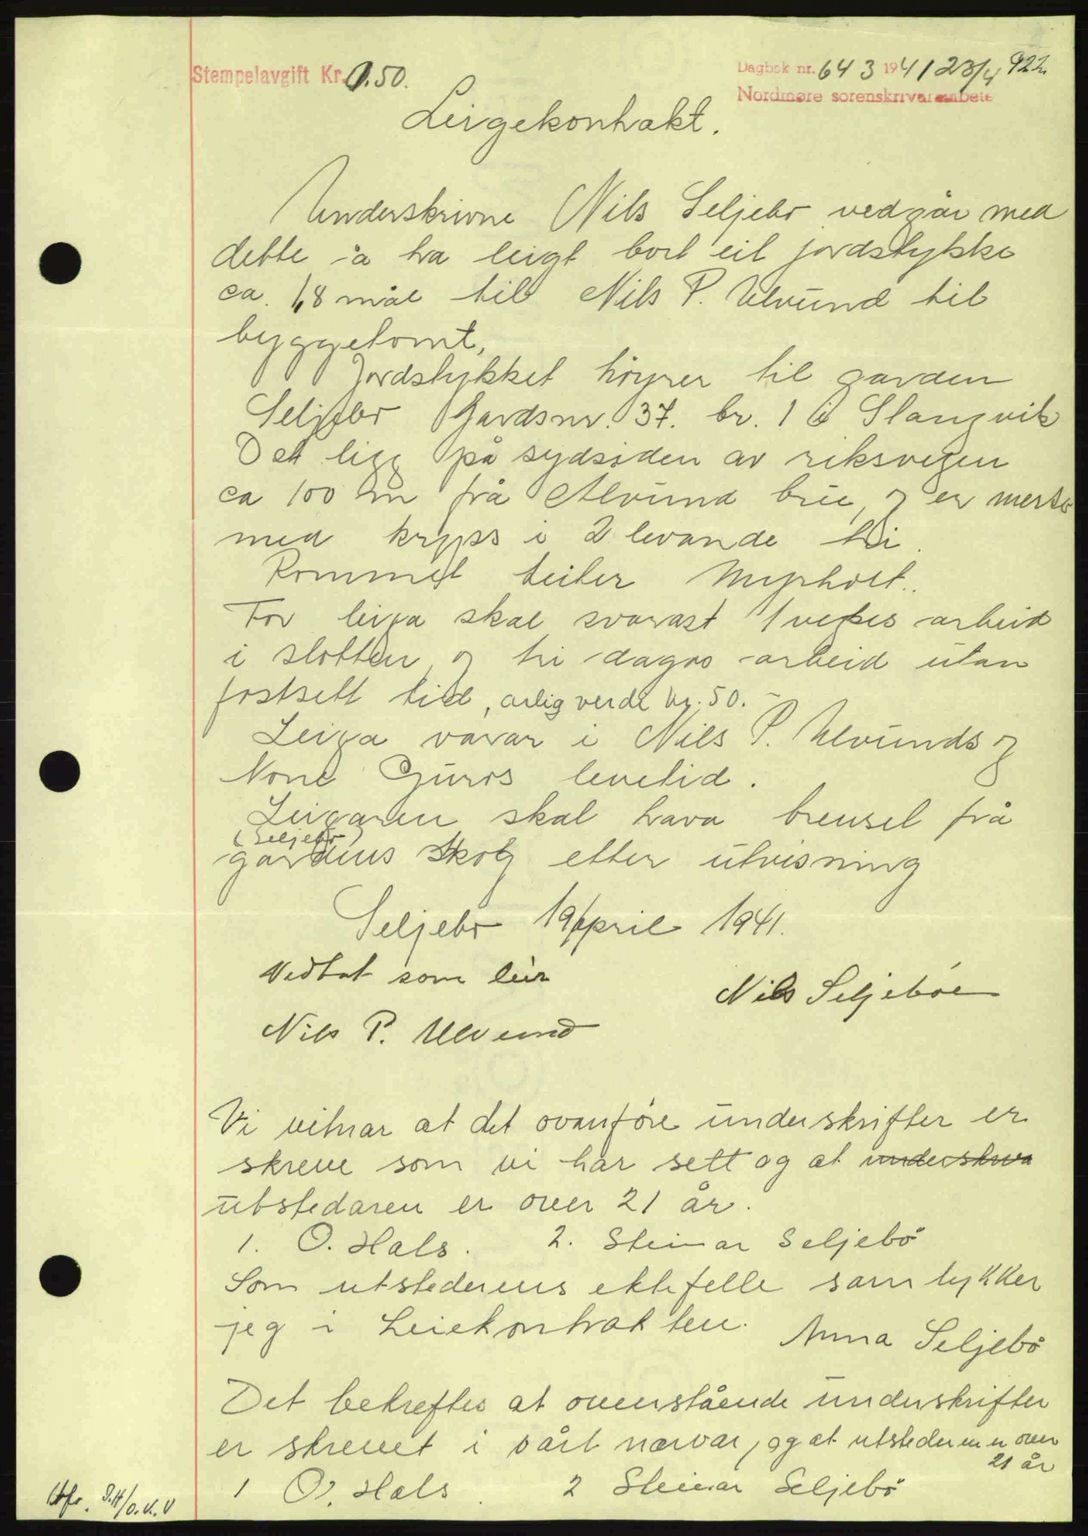 Stempelavgift Kr. 0.50.
Dagbok nr. 643 1941 23/4 922
Nordmøre sorenskrivarembete
Leigekontrakt.
Underskrivne Nils Seljebø vedgår med
dette å ha leigt bort eit jordstykke
ca. 1,8 mål til Nils P. Ulvund til
byggetomt,
Jordstykket höyrer til garden
Seljebø Gardsnr. 37. br. 1 i Stangvik
Det ligg på sydsiden av riksvegen
ca 100 m frå Alvund brue, og er merkt
med kryss i 2 levande tri.
Rommet heiter Myrholt..
For leiga skal svarast 1 vekes arbeid
i slotten, og tri dagos arbeid utan
fastsett tid, årlig verdi kr. 50.-
Leiga varar i Nils P. Ulvunds og
Kone Guros levetid.
Leigaren skal hava brensel frå
(Seljebø)
gardens skog etter utvisning
Seljebø 19 April 1941.
Vedtat som leir
Nils Seljeböe
Nils P. Ulvund
Vi vitnar at det ovanføre underskrifter er
skreve som vi har sett og at underskriva
utstedaren er over 21 år.
1. O. Hals. 2. Steinar Seljebö
Som utstederens ektefelle samtykker
jeg i Leiekontrakten.
Anna Seljebö
Det bekreftes at ovenstående underskrifter
er skrevet i vårt nærvær, og at utstederen er over
21 år
1 O. Hals. 2 Steinar Seljebö